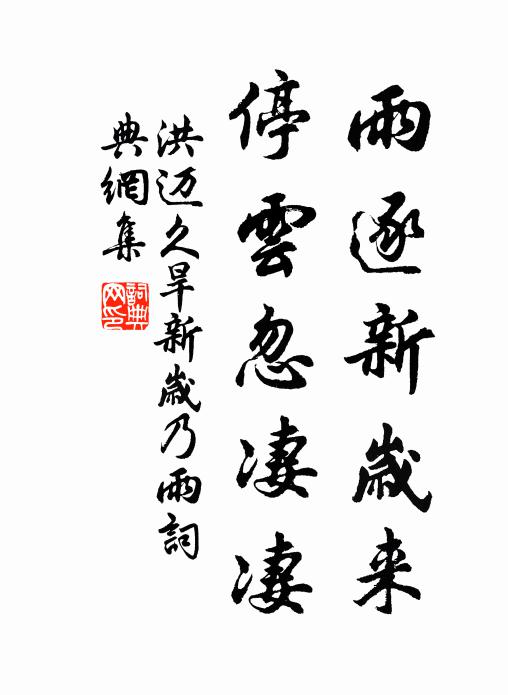 雨逐新歲来
停雲忽凄凄
洪迈久旱新歲乃雨詞
典網集
詞典
网印